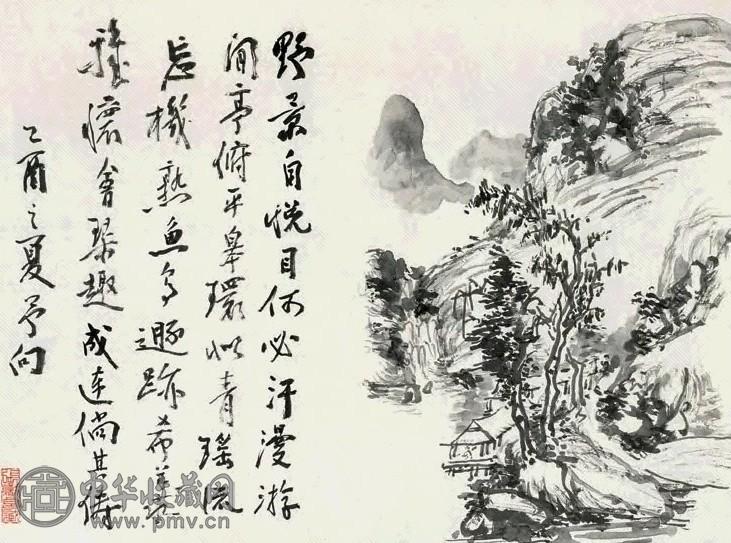 野景自悦目何必汗漫游
閒亭俯平皋環似青瑶流
忘機熟魚鳥遯跡希
雅懷會琴趣成連倘其儔
乙酉之夏予向
中华收藏网
www.pmv.cn